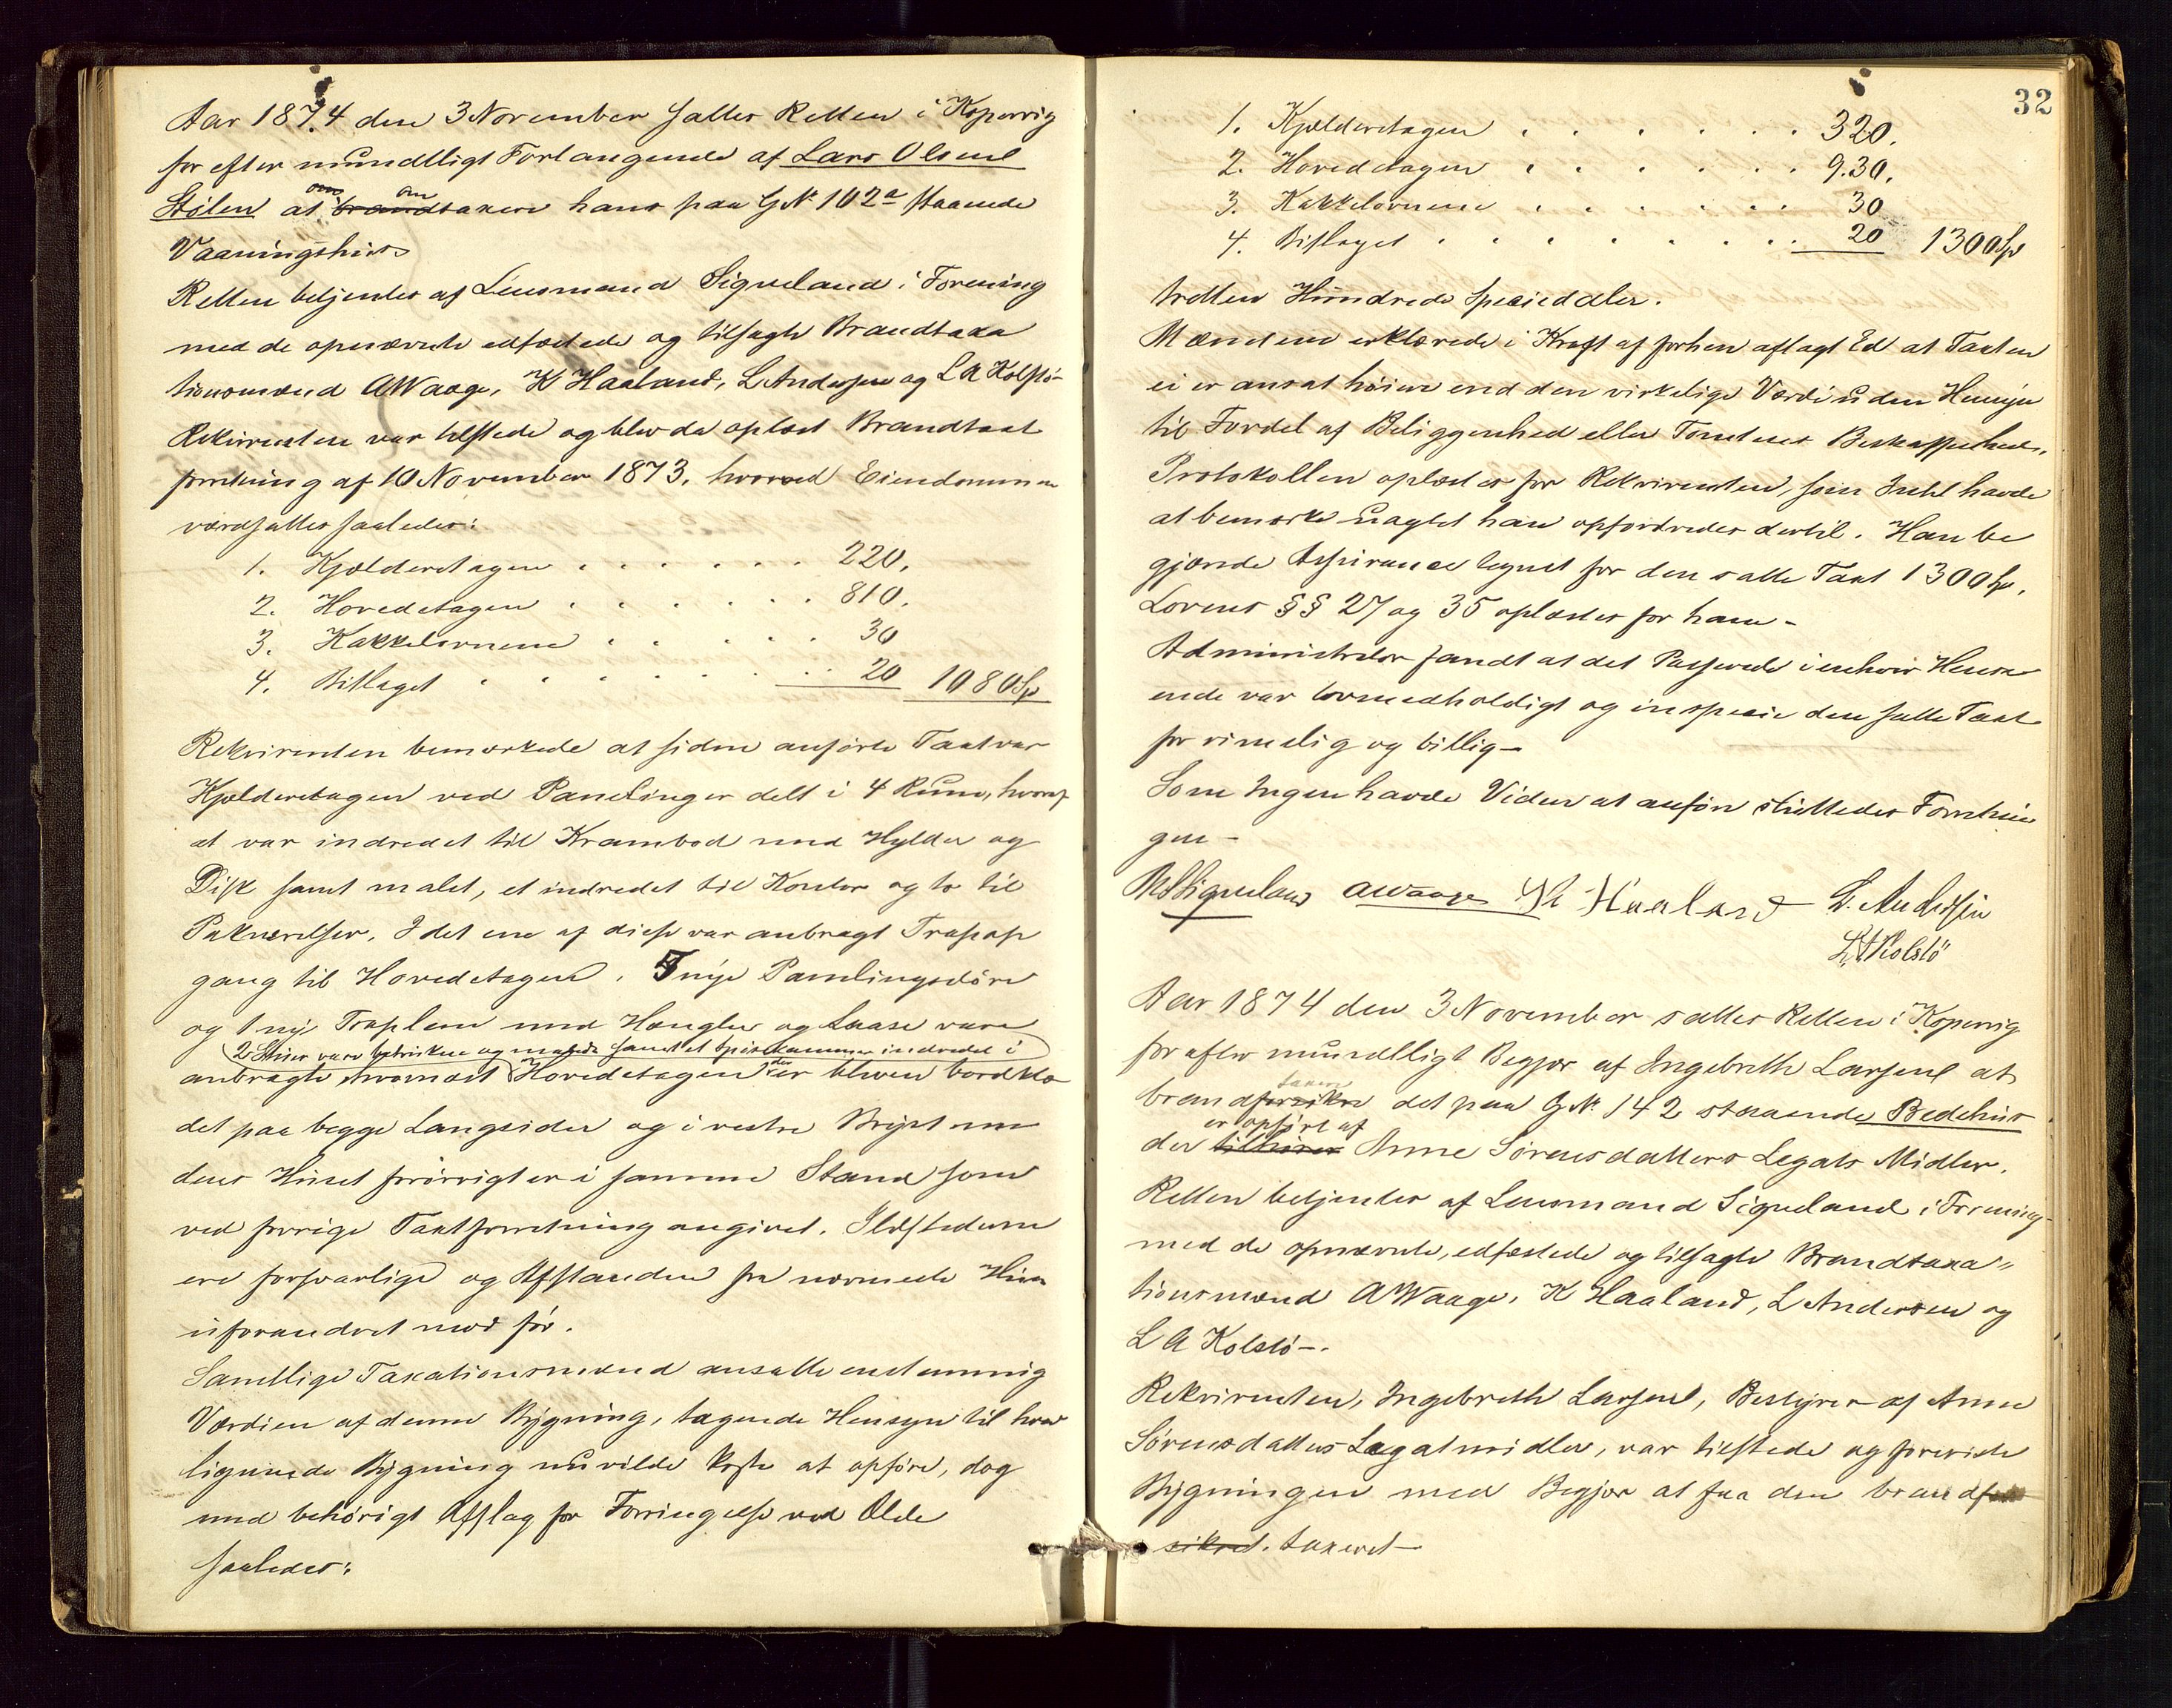 Aar 1874 den 3 November sattes Retten i Kopervig
for efter mundtligt Forlangende af Lars Olsen
Stølen at omtaxere hans paa G No 102a staaende
Vaaningshus
Retten betjentes af Lensmand Sigveland i Forening
med de opnævnte edfæstede og tilsagte Brandtaxa
tionsmænd AWaage, K Haaland, L Andersen og L A Kolstø-
Rekvirenten var tilstede og blev da oplæst Brandtaxt
forretning af 10 November 1873, hvorved Eiendommen
værdsattes saaledes:
1. Kjælderetagen . . . . . . 220.
2. Hovedetagen . . . . . . 810.
3. Kakkelovnene . . . . . 30
4. Bislaget . . . . . . . 20 1080 Sp
Rekvirenten bemærkede at siden anførte Taxt var
Kjælderetagen ved Panelinger delt i 4 Rum, hvoraf
et var indredet til Krambod med Hylder og
Disk samt malet, et indredet til Kontor og to til
Pakværelser. I det ene af disse var anbragt Trapop
gang til Hovedetagen. 5 nye Panelingsdøre
og 1 ny Traplem med Hængsler og Laase vare
2 Stuer vare betrukne og malede samt et Spisekammer indredet i
anbragte, hvornæst Hovedetagen der er bleven bordklæ
det paa begge Langsider og i vestre Bryst me
dens Huset forøvrigt er i samme Stand som
ved forrige Taxtforretning angivet. Ildstederne
ere forsvarlige og Afstanden fra nærmeste Huse
uforandret mod før.
Samtlige Taxationsmænd ansatte enstemmig
Værdien af denne Bygning, tagende Hensyn til hvad
lignende Bygning nu vilde koste at opføre, dog
med behørigt Afslag for Forringelse ved Ælde
saaledes:
32
1. Kjælderetagen . . . . . . . 320.
2. Hovedetagen . . . . . . . 930.
3. Kakkelovnene . . . . . . . 30
4. Bislaget . . . . . . . . 20 1300 Sp
tretten Hundrede Speciedaler.
Mændene erklærede i Kraft af forhen aflagt Ed at Taxten
ei er ansat høiere end den virkelige Værdi uden Hensyn
til Fordel af Beliggenhed eller Tomtens Beskaffenhed.
Protokollen oplæstes for Rekvirenten, som Intet havde
at bemærke uagtet han opfordredes dertil. Han be
gjærede Assurance tegnet for den satte Taxt 1300 Sp.
Lovens §§ 27 og 35 oplæstes for ham -
Administrator fandt at det Passerede i enhver Hense
ende var lovmedholdigt og in specie den satte Taxt
for rimelig og billig -
Som Ingen havde Videre at anføre sluttedes Forretnin
gen -
Sigveland AWaage K Haaland L. Andersen
L A Kolstö
Aar 1874 den 3 November sattes Retten i Kopervig
for efter mundtligt Begjær af Ingebreth Larsen at
taxere
brandforsikre det paa G No 142 staaende Bedehus
er opført af
der tilhører Anne Sørensdatters Legats Midler.
Retten betjentes af Lensmand Sigveland i Forening
med de opnævnte, edfæstede og tilsagte Brandtaxa"
tionsmænd AWaage, K Haaland, L Andersen og
L A Kolstö -.
Rekvirenten, Ingebreth Larsen, Bestyrer af Anne
Sørensdatters Legatmidler, var tilstede og foreviste
Bygningen med Begjær at faa den brandfor
sikret. taxeret -